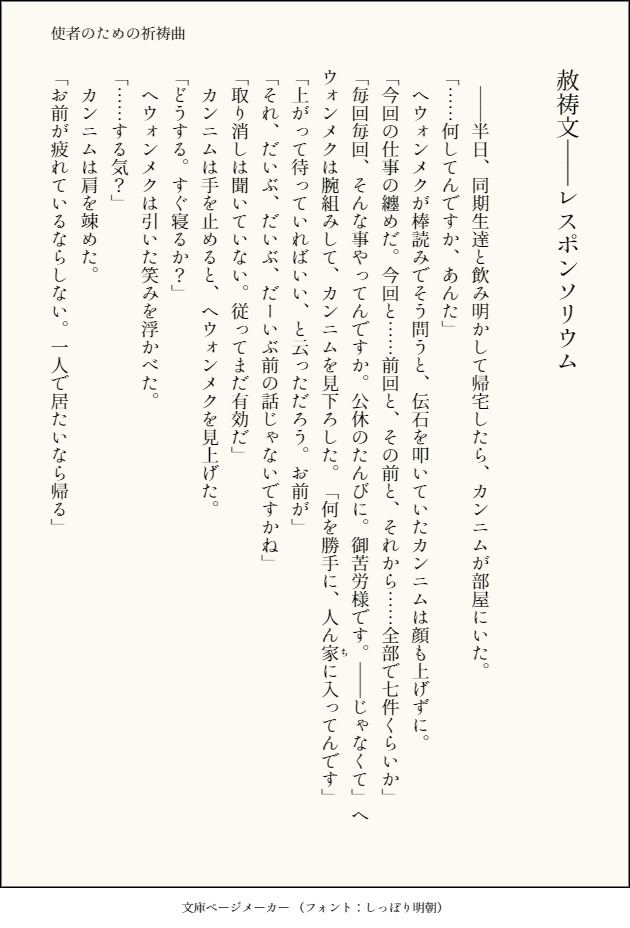 使者のための祈祷曲
赦祷文――レスポンソリウム
――半日、同期生達と飲み明かして帰宅したら、カンニムが部屋にいた。
「……何してんですか、あんた」
ヘウォンメクが棒読みでそう問うと、伝石を叩いていたカンニムは顔も上げずに。
「今回の仕事の纏めだ。今回と……前回と、その前と、それから……全部で七件くらいか」
「毎回毎回、そんな事やってんですか。公休のたんびに。御苦労様です。――じゃなくて」ヘ
ウォンメクは腕組みして、カンニムを見下ろした。「何を勝手に、人ん家ちに入ってんです」
「上がって待っていればいい、と云っただろう。お前が」
「それ、だいぶ、だいぶ、だーいぶ前の話じゃないですかね」
「取り消しは聞いていない。従ってまだ有効だ」
カンニムは手を止めると、ヘウォンメクを見上げた。
「どうする。すぐ寝るか？」
ヘウォンメクは引いた笑みを浮かべた。
「……する気？」
カンニムは肩を竦めた。
「お前が疲れているならしない。一人で居たいなら帰る」
文庫ページメーカー（フォント：しっぽり明朝）